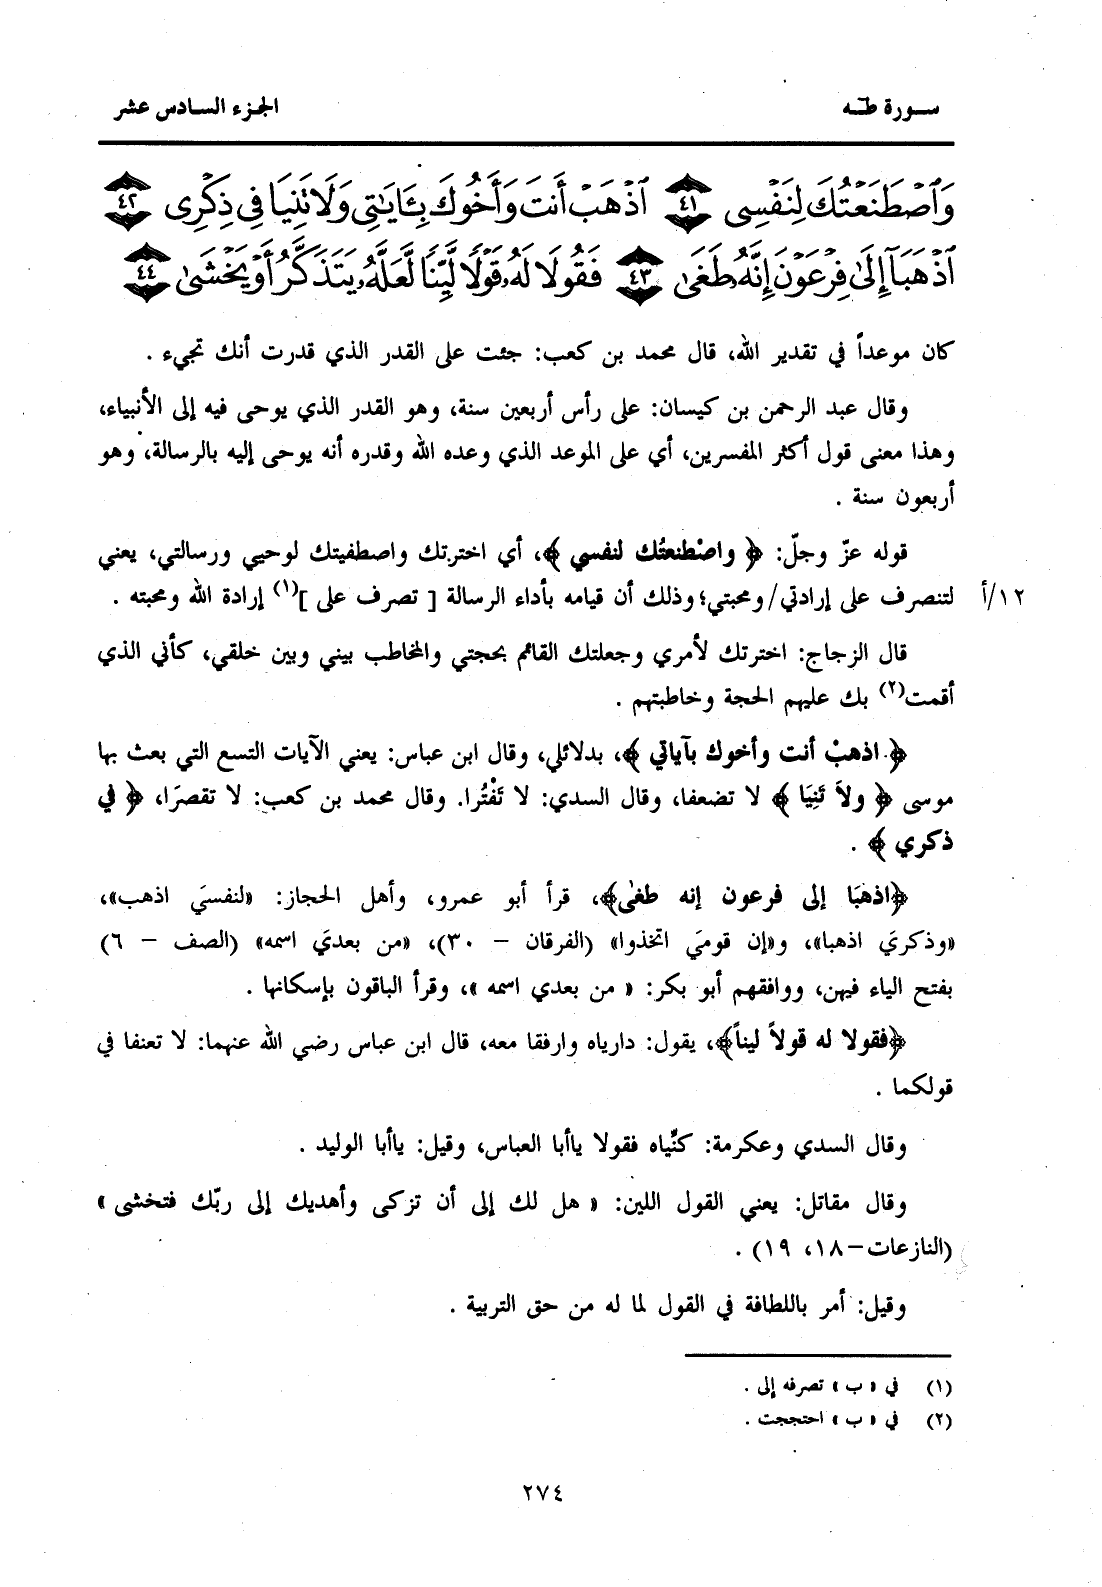 سورة طه
الجزء السادس عشر
وَٱصۡطَنَعۡتُكَ لِنَفۡسِى ٤١ ٱذۡهَبۡ أَنتَ وَأَخُوكَ بِـَٔايَـٰتِى وَلَا تَنِيَا فِى ذِكۡرِى ٤٢
ٱذۡهَبَآ إِلَىٰ فِرۡعَوۡنَ إِنَّهُۥ طَغَىٰ ٤٣ فَقُولَا لَهُۥ قَوۡلًا لَّيِّنًا لَّعَلَّهُۥ يَتَذَكَّرُ أَوۡ يَخۡشَىٰ ٤٤
كان موعداً في تقدير الله، قال محمد بن كعب: جئت على القدر الذي قدرت أنك تجيء .
وقال عبد الرحمن بن كيسان: على رأس أربعين سنة، وهو القدر الذي يوحى فيه إلى الأنبياء،
وهذا معنى قول أكثر المفسرين، أي على الموعد الذي وعده الله وقدره أنه يوحى إليه بالرسالة، وهو
أربعون سنة .
قوله عزّ وجلّ: ﴿ واصْطنعتُك لنفسي ﴾، أي اخترتك واصطفيتك لوحيي ورسالتي، يعني
لتنصرف على إرادتي/ومحبتي؛ وذلك أن قيامه بأداء الرسالة [ تصرف على ](١) إرادة الله ومحبته .
١٢/أ
قال الزجاج: اخترتك لأمري وجعلتك القائم بحجتي والمخاطب بيني وبين خلقي، كأني الذي
أقمت(٢) بك عليهم الحجة وخاطبتهم .
﴿ اذهبْ أنت وأخوك بآياتي ﴾، بدلائلي، وقال ابن عباس: يعني الآيات التسع التي بعث بها
موسى ﴿ ولاَ تَنِيَا ﴾ لا تضعفا، وقال السدي: لا تَفْتُرا. وقال محمد بن كعب: لا تقصرَا، ﴿ في
ذكري ﴾ .
﴿اذهبَا إلى فرعون إنه طغىٰ﴾، قرأ أبو عمرو، وأهل الحجاز: «لنفسيَ اذهب»،
«وذكريَ اذهبا»، و«إن قوميَ اتخذوا» (الفرقان – ٣٠)، «من بعديَ اسمه» (الصف – ٦)
بفتح الياء فيهن، ووافقهم أبو بكر: « من بعدي اسمه »، وقرأ الباقون بإسكانها .
﴿فقولا له قولاً ليناً﴾، يقول: دارياه وارفقا معه، قال ابن عباس رضي الله عنهما: لا تعنفا في
قولكما .
وقال السدي وعكرمة: كنِّياه فقولا ياأبا العباس، وقيل: ياأبا الوليد .
وقال مقاتل: يعني القول اللين: « هل لك إلى أن تزكى وأهديك إلى ربّك فتخشى »
(النازعات–١٨، ١٩) .
وقيل: أمر باللطافة في القول لما له من حق التربية .
(١) في « ب » تصرفه إلى .
(٢) في « ب » احتججت .
٢٧٤